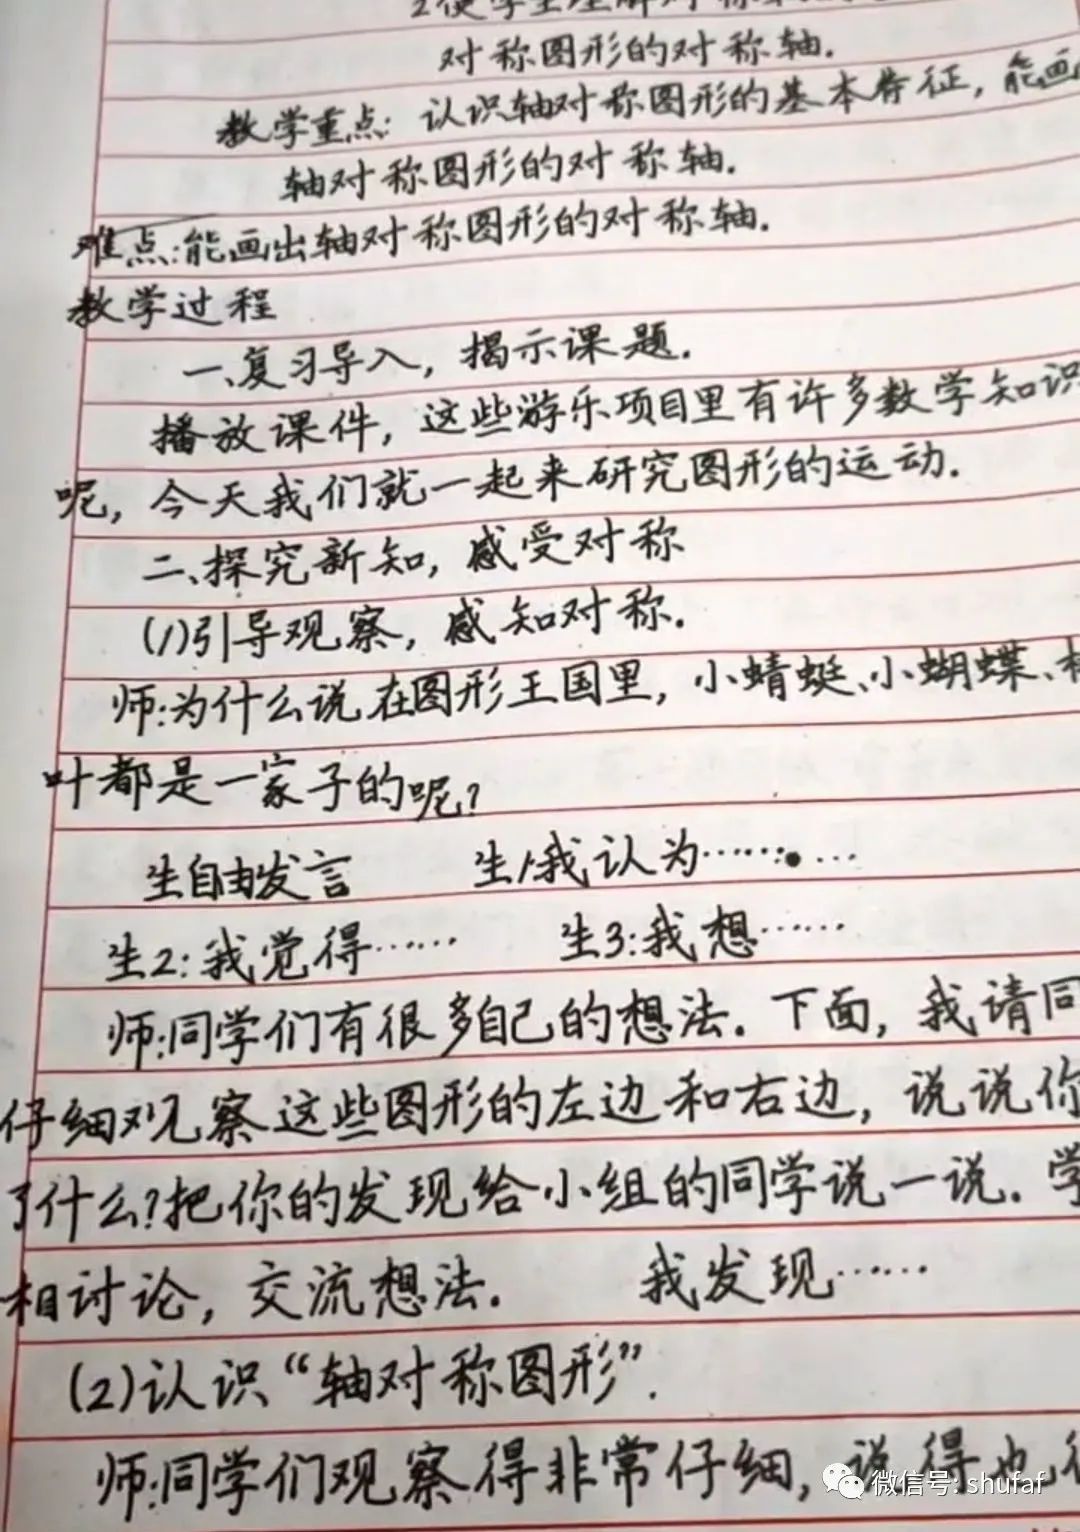 2使学生理解对称
对称图形的对称轴.
教学重点: 认识轴对称图形的基本特征, 能画
轴对称图形的对称轴.
难点:能画出轴对称图形的对称轴.
教学过程
一、复习导入, 揭示课题.
播放课件, 这些游乐项目里有许多数学知识
呢, 今天我们就一起来研究图形的运动.
二、探究新知, 感受对称
(1)引导观察, 感知对称.
师:为什么说在图形王国里, 小蜻蜓、小蝴蝶、
叶都是一家子的呢?
生自由发言 生1:我认为……
生2:我觉得…… 生3:我想……
师:同学们有很多自己的想法. 下面, 我请同
仔细观察这些图形的左边和右边, 说说你
了什么?把你的发现给小组的同学说一说. 学
相讨论, 交流想法. 我发现……
(2)认识“轴对称图形”.
师:同学们观察得非常仔细, 说得也
微信号: shufaf